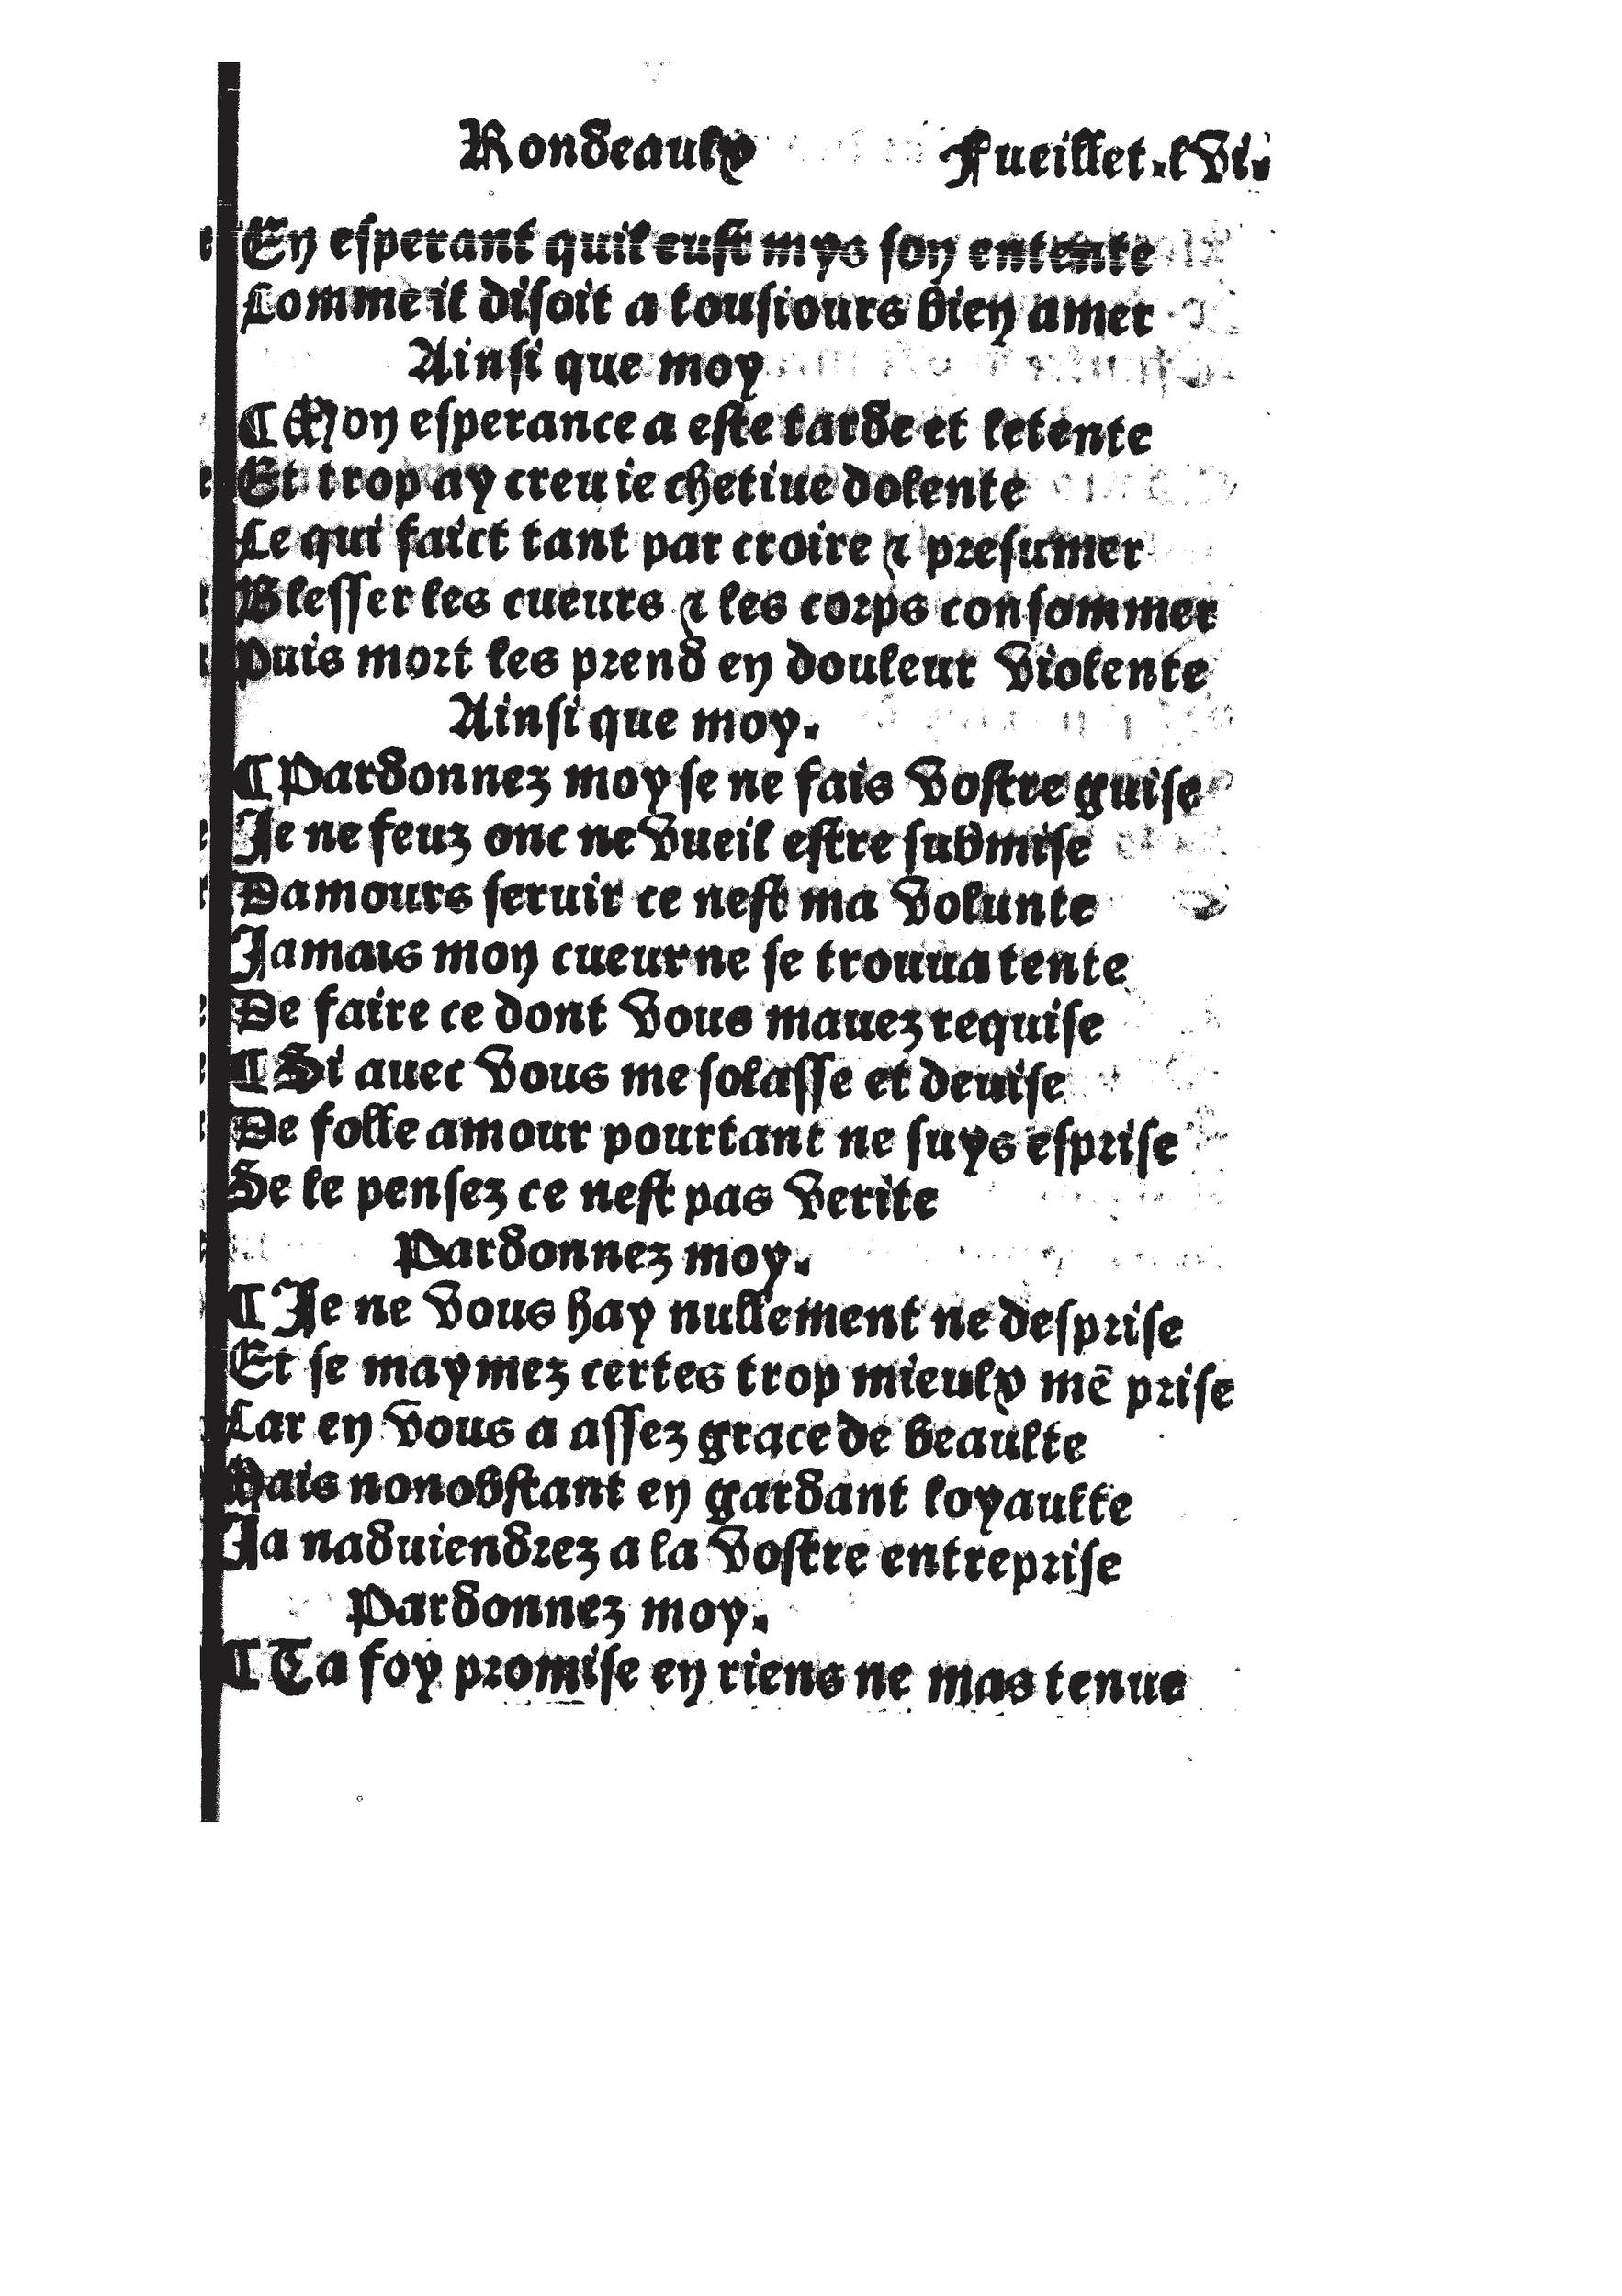 Rondeaulx Fueillet.lvi.
En esperant quil eust mys son entente
Comme il disoit a tousiours bien amer
Ainsi que moy
¶ Mon esperance a este tarde et letente
Et trop ay creu ie chetiue dolente
Ce qui faict tant par croire & presumer
Blesser les cueurs & les corps consommer
Puis mort les prend en douleur violente
Ainsi que moy.
¶ Pardonnez moy se ne fais vostre guise
Je ne feuz onc ne vueil estre submise
Damours seruir ce nest ma volunte
Jamais mon cueur ne se trouua tente
De faire ce dont vous mauez requise
¶ Si auec vous me solasse et deuise
De folle amour pourtant ne suys esprise
Se le pensez ce nest pas verite
Pardonnez moy.
¶ Je ne vous hay nullement ne desprise
Et se maymez certes trop mieulx mē prise
Car en vous a assez grace de beaulte
Mais nonobstant en gardant loyaulte
Ja naduiendrez a la vostre entreprise
Pardonnez moy.
¶ Ta foy promise en riens ne mas tenue